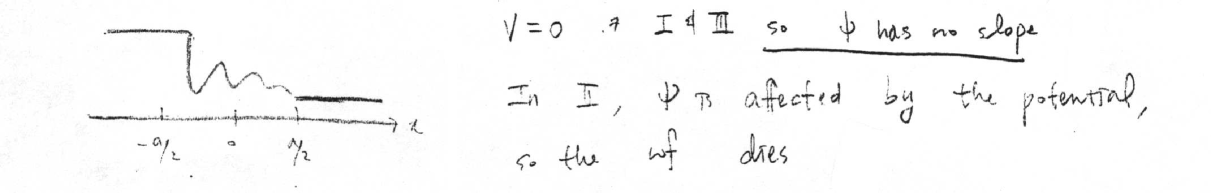 V = 0 at I & III so ψ has no slope
In II, ψ is affected by the potential,
so the wf dies
-a/2 0 a/2 x